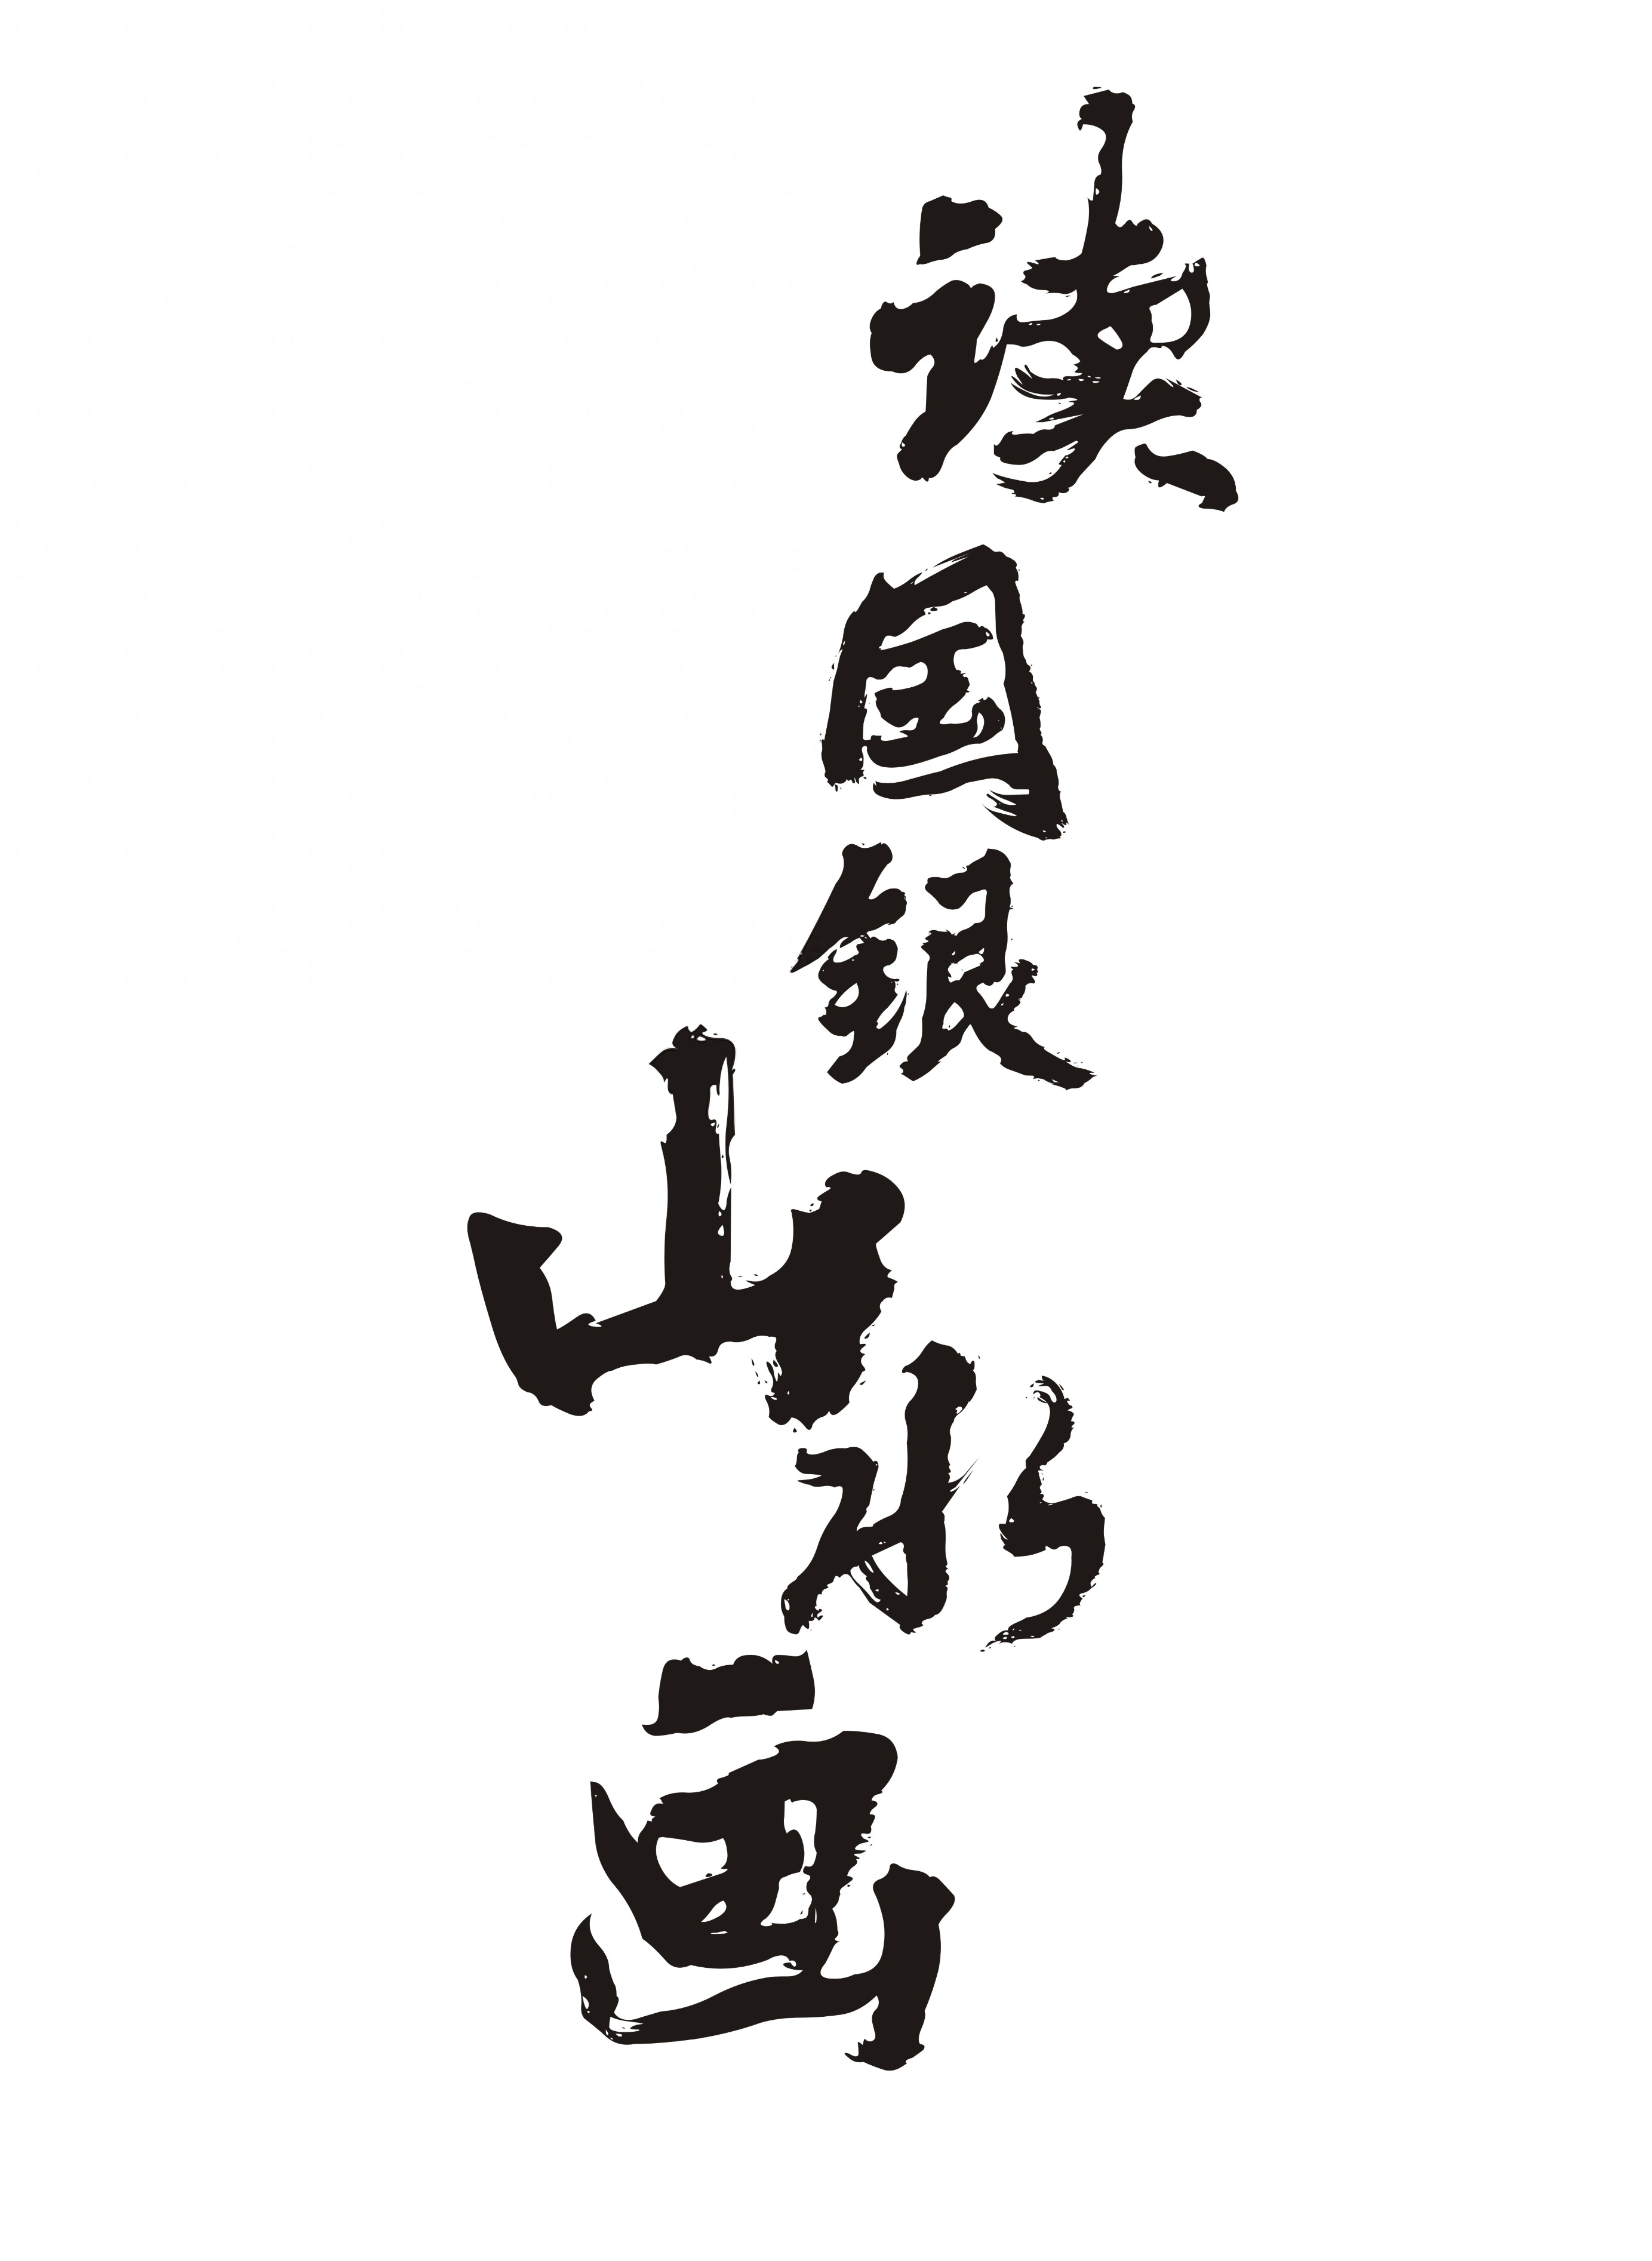 读国银山水画